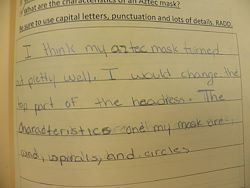 What are the characteristics of an Aztec mask?
Be sure to use capital letters, punctuation and lots of details. RADD.
I think my aztec mask turned
ut pretty well. I would change the
top part of the headress. The
characteristics my mask are
and, spirals, and circles